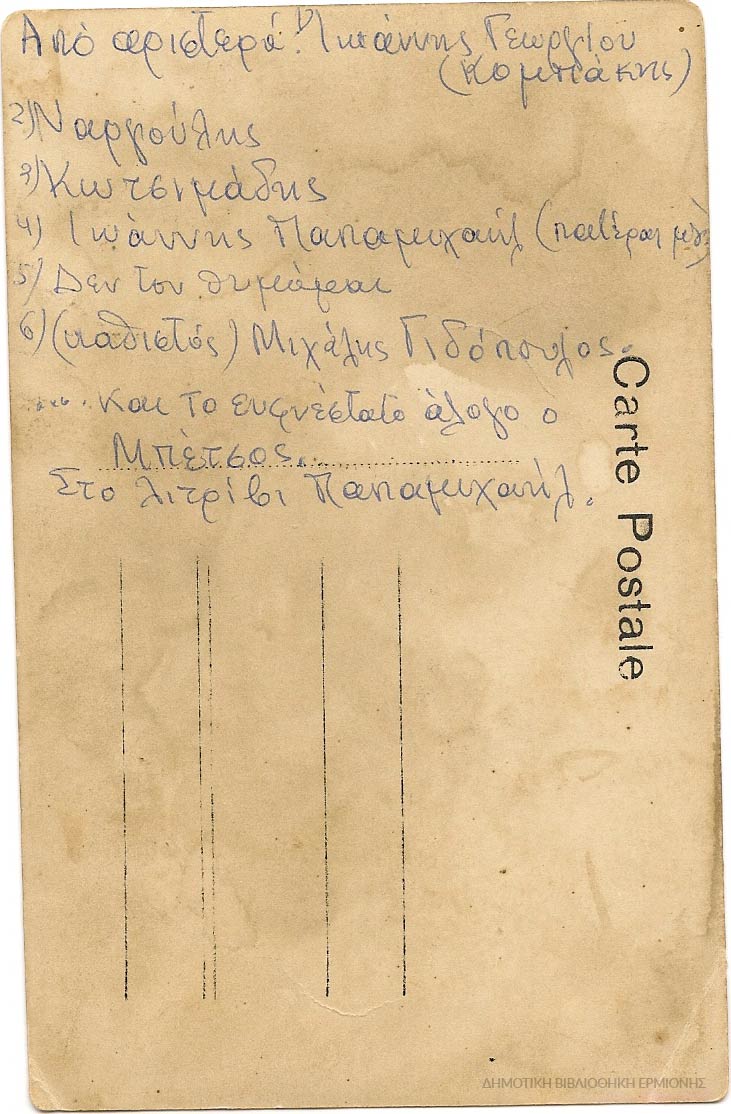 Από αριστερά: 1) Ιωάννης Γεωργίου
(Κομπιάκης)
2) Ναργούλης
3) Κωτσιμάδης
4) Ιωάννης Παπαμιχαήλ (πατέρας μου)
5) Δεν τον θυμάμαι
6) (καθιστός) Μιχάλης Γιδόπουλος.
.... και το ευφυέστατο άλογο ο
Μπέτσος.
Στο λιτρίβι Παπαμιχαήλ.
Carte Postale
ΔΗΜΟΤΙΚΗ ΒΙΒΛΙΟΘΗΚΗ ΕΡΜΙΟΝΗΣ